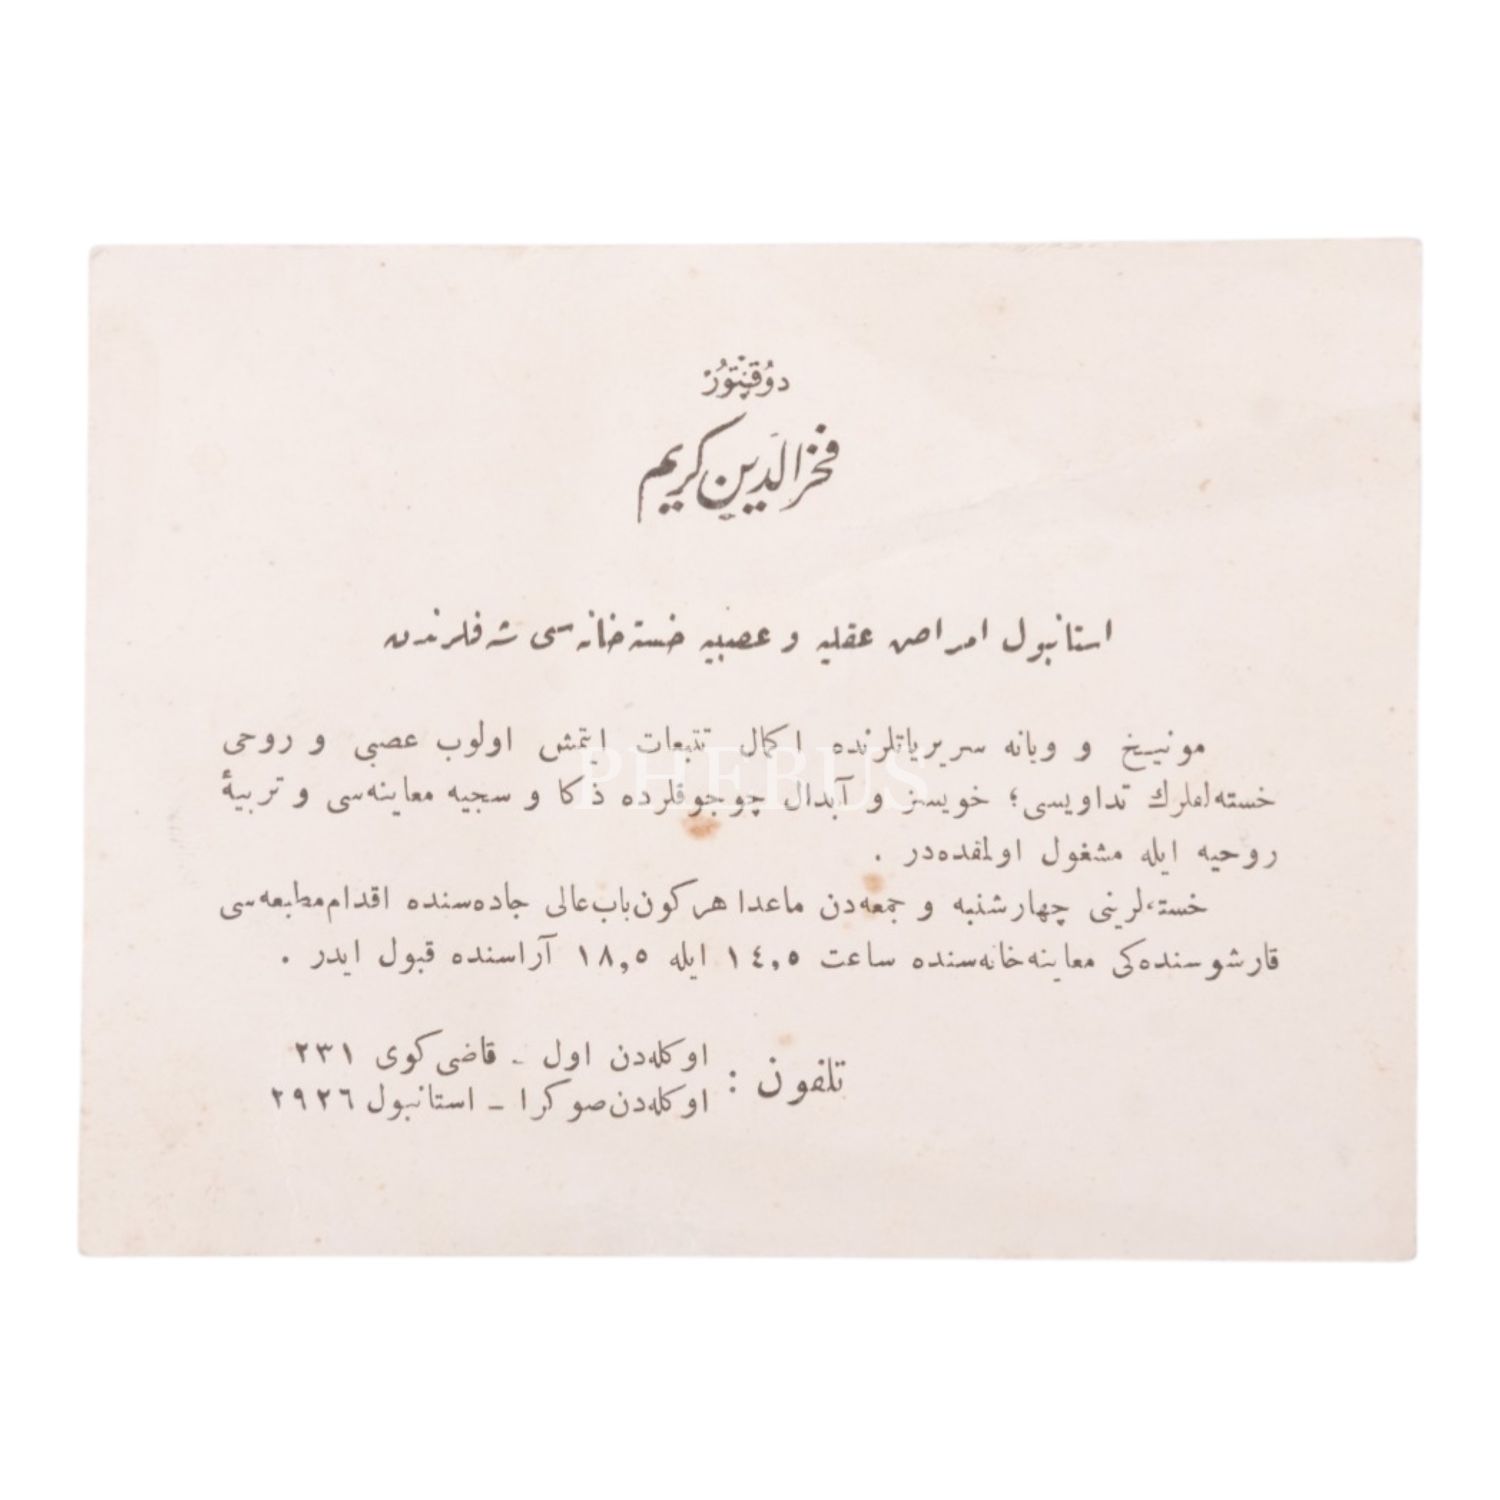 دوقتور
فخرالدین کریم
استانبول امراض عقلیه و عصبیه خسته‌خانه‌سی شه‌فلرندن
مونیخ و ویانه سریریاتلرنده اکمال تتبعات ایتمش اولوب عصبی و روحی
خسته‌لقلرك تداویسی؛ خویسز و آبدال چوجوقلرده ذکا و سجیه معاینه‌سی و تربیۀ
روحیه ایله مشغول اولمقده‌در .
خسته‌لرینی چهارشنبه و جمعه‌دن ماعدا هرکون باب عالی جاده‌سنده اقدام مطبعه‌سی
قارشوسنده‌کی معاینه‌خانه‌سنده ساعت ١٤,٥ ایله ١٨,٥ آراسنده قبول ایدر .
تلفون :
اوکله‌دن اول ـ قاضی کوی ٢٣١
اوکله‌دن صوکرا ـ استانبول ٢٩٢٦
PHEBUS